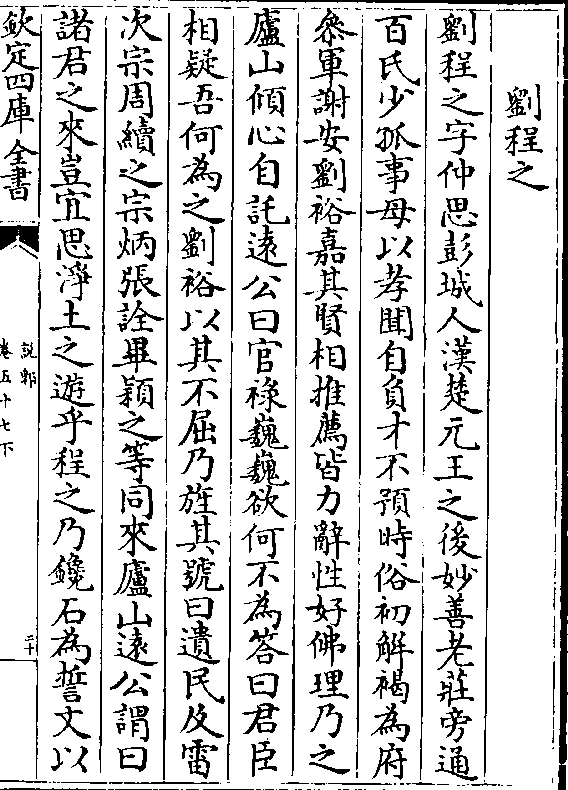 劉程之
劉程之字仲思彭城人漢楚元王之後妙善老莊旁通
百氏少孤事母以孝聞自負才不預時俗初解褐為府
參軍謝安劉裕嘉其賢相推薦皆力辭性好佛理乃之
廬山傾心自託遠公曰官祿巍巍欲何不為答曰君臣
相疑吾何為之劉裕以其不屈乃旌其號曰遺民及雷
次宗周續之宗炳張詮畢頴之等同來廬山遠公謂曰
諸君之來豈宜思淨土之遊乎程之乃鑱石為誓文以
欽定四庫全書
說郛
卷五十七下
二十